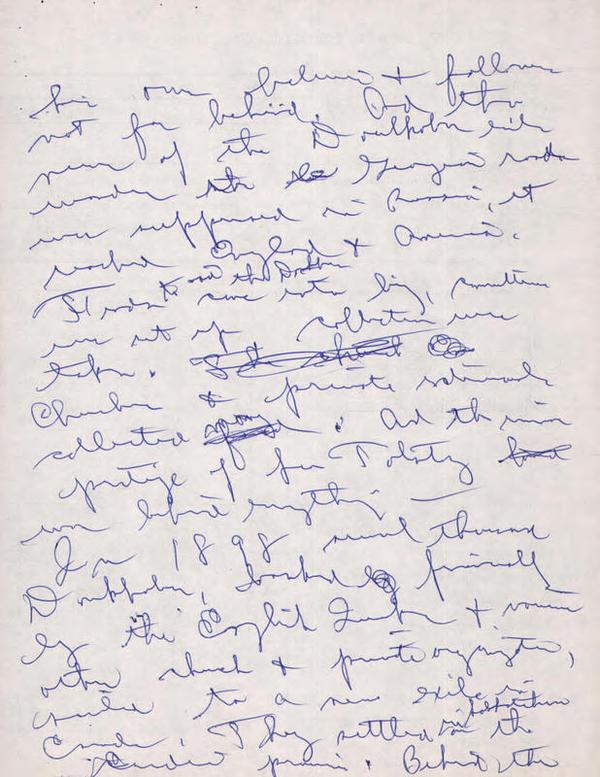 his own & follow
not far behind. And the
news of the Doukhobor exile
wander into Georgia roads
was suppressed in Russia, it
reached England & America.
to aid the Doukhobors
It came into being, committees
were set up collections were
taken.
Churches & private
collected . And the
prestige of Leo Tolstoy
was behind everything
In 1898 several thousand
Doukhobors, backed financially
by the English Quakers & various
other church & private organizations,
to a new exile in
Canada. They settled in the
Canadian prairies. Behind the